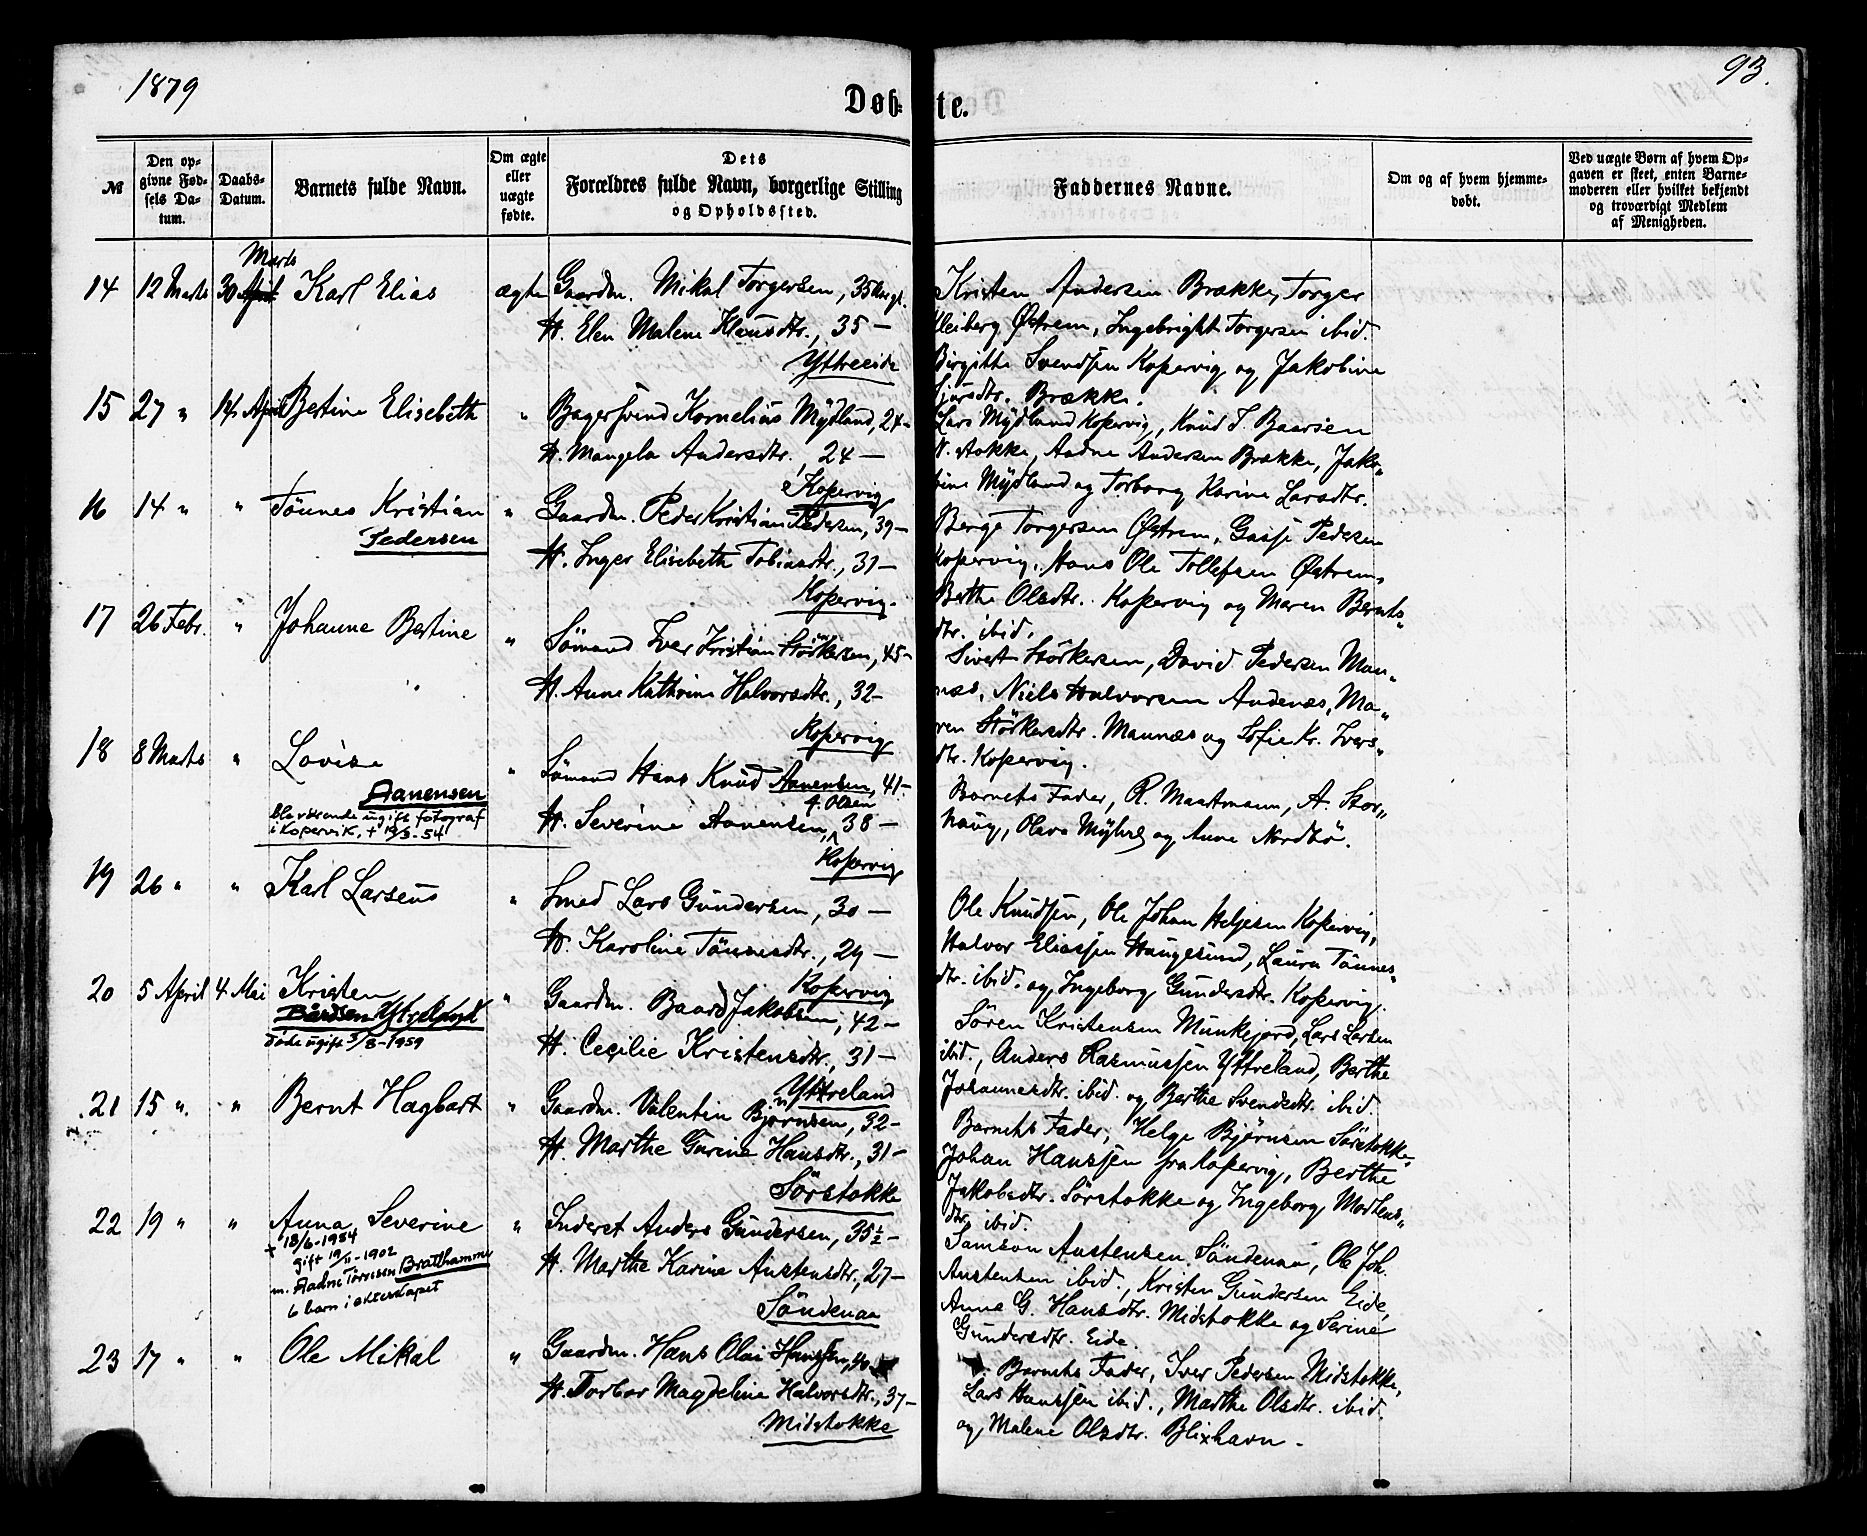 1879
93.
Døbte.
№
Den opgivne Fødsels Datum.
Daabs-Datum.
Barnets fulde Navn.
Om ægte eller uægte fødte.
Dets Forældres fulde Navn, borgerlige Stilling og Opholdssted.
Faddernes Navne.
Om og af hvem hjemmedøbt.
Ved uægte Børn af hvem Opgaven er skeet, enten Barnemoderen eller hvilket bekjendt og troværdigt Medlem af Menigheden.
Marts
14 12 Marts 30 April Karl Elias ægte Gaardm. Mikal Torgersen, 35
H. Elen Malene Klausdtr., 35 —
Yttreeide
Kristen Andersen Brække, Torger
Kleiberg Østrem, Ingebright Torgersen ibid.
Birgithe Svendsen Kopervig og Jakobine
Sjursdtr. Brække.
15 27 " 14 April Bertine Elisabeth " Bagersvend Kornelius Mydland, 24 —
H. Mangela Andersdtr., 24 —
Kopervig
Lars Mydland Kopervig, Knud T. Baarsen
N. Stokke, Aadne Andersen Brække, Jako-
bine Mydland og Torborg Karine Larsdtr.
16 14 " " Tönnes Kristian " Gaardm. Peder Kristian Pedersen, 39 —
Pedersen
H. Inger Elisebeth Tobiasdtr., 31 —
Kopervig.
Berge Torgersen Østrem, Gasse Pedersen
Kopervig, Hans Ole Tollefsen Østrem,
Berthe Olsdtr. Kopervig og Maren Bernts-
dtr. ibid.
17 26 Febr. " Johanne Bertine " Sömand Iver Kristian Störkersen, 45 —
H. Anne Kathrine Halvorsdtr., 32 —
Kopervig
Sivert Störkersen, David Pedersen Mau-
næs, Niels Halvorsen Audenæs, Ma-
ren Störkersdtr. Maunæs og Sofie Kr. Ivers-
dtr. Kopervig.
18 8 Marts " Lovise " Sömand Hans Knud Aanensen, 41 —
Aanensen
f. Olsen
H. Severine Aanensen, 38 —
Kopervig
ugift fotograf
i Kopervik, + 54
Barnets Fader, R. Maartmann, A. Stor-
haug, Olava Myhre og Anne Nordbö.
19 26 " " Karl Larseus " Smed Lars Gundersen, 30 —
H. Karoline Tönnesdtr., 29 —
Kopervig
Ole Knudsen, Ole Johan Heljesen Kopervig,
Halvor Eliassen Haugesund, Laura Tönnes-
dtr. ibid. og Ingeborg Gundersdtr. Kopervig.
20 5 April 4 Mai Kristen " Gaardm. Baard Jakobsen, 42 —
Bårdsen Ytreland
Döde ugift 5/8-1959
H. Cecilie Kristensdtr., 31 —
Yttreland
Sören Kristensen Munkejord, Lars Larsen
ibid., Anders Rasmussen Yttreland, Berthe
Johannesdtr. ibid. og Berthe Svendsdtr. ibid.
21 15 " " Bernt Hagbart " Gaardm. Valentin Bjørnsen, 32 —
H. Marthe Gurine Hansdtr., 31 —
Sörstokke
Barnets Fader, Helge Bjørnsen Sörstokke,
Johan Hanssen fra Kopervig, Berthe
Jakobsdtr. Sörstokke og Ingeborg Mortens-
dtr. ibid.
22 19 " " Anna Severine " Inderst Anders Gundersen, 35½ —
+ 18/6-1954
gift 19/11-1902
m. Aadne Tönnesen Bratthammer
6 barn i ekteskapet
H. Marthe Karine Austensdtr., 27 —
Söndenaa
Samson Austensen Söndenaa, Ole Joh.
Austensen ibid., Kristen Gundersen Eide,
Anna G. Hansdtr. Midstokke og Serine
Gundersdtr. Eide.
23 17 " " Ole Mikal " Gaardm. Hans Olai Hanssen, 40
H. Torbor Magdeline Halvorsdtr., 37 —
Midstokke
Barnets Fader, Iver Pedersen Midstokke,
Lars Hanssen ibid., Marthe Olsdtr. ibid.
og Malene Olsdtr. Blixhavn.